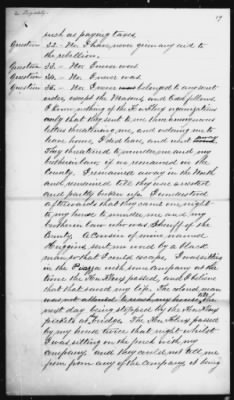 19
such as paying taxes.
Question 32.- No. I have never given any aid to
the rebellion.
Question 33.- No. I never was.
Question 34.- No. I never was.
Question 35.- No. I never belonged to any secret
order, except the Masons, and Odd fellows.
I know nothing of the Ku Klux organizations
only that they sent to me then anonymous
letters threatening me, and ordering me to
leave home, I did leave, and went away
They threatened to murder me and my
brother in law if we remained in the
County. I remained away in the North
and remained till they were arrested
and partly broken up. I understood
afterwards that they came one night
to my house to murder me and my
brother in law who was Sheriff of the
County. A Cousin of mine named
Huggins sent me word by a black
man so that I could escape. I was sitting
in the Piazza with some company at the
time the Ku Klux passed, and I believe
that that saved my life. The colored man
was not allowed to reach my house, till
next day being stopped by the Ku Klux
pickets at bridge. The Ku Klux passed
by my house twice that night whilst
I was sitting on the porch with my
company and they could not tell me
from any of the company it being